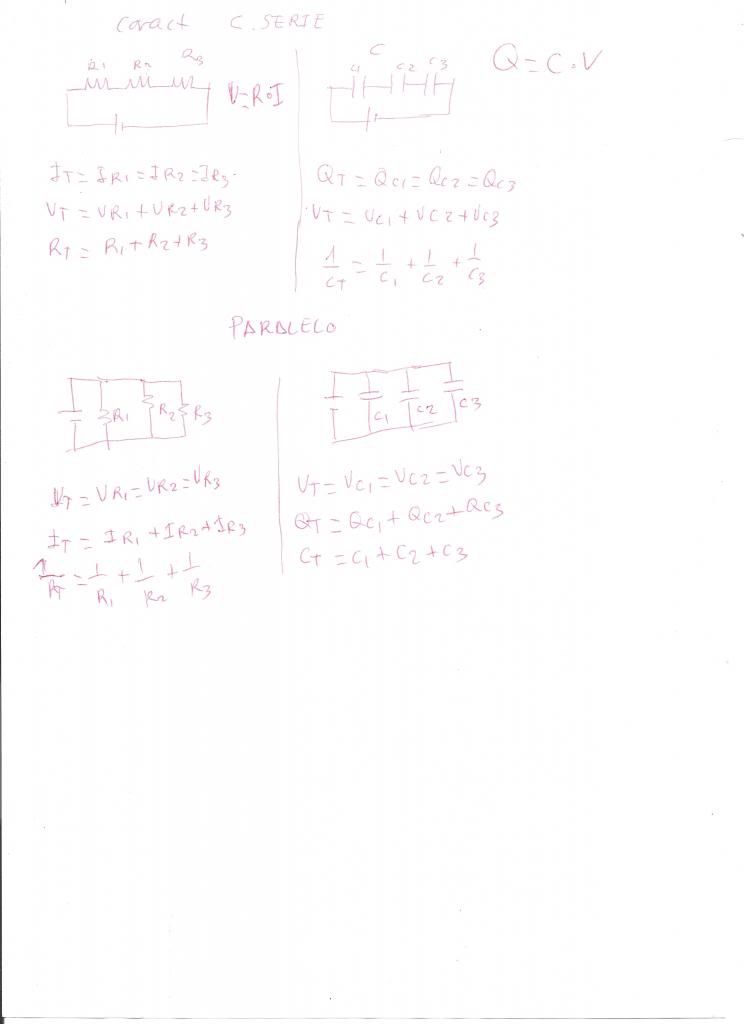 Caract C. SERIE
R1 R2 R3
V=R•I
I_T = I_R1 = I_R2 = I_R3.
V_T = V_R1 + V_R2 + V_R3
R_T = R1 + R2 + R3
C
C1 C2 C3
Q = C • V
Q_T = Q_C1 = Q_C2 = Q_C3
V_T = V_C1 + V_C2 + V_C3
1/C_T = 1/C1 + 1/C2 + 1/C3
PARALELO
R1 R2 R3
V_T = V_R1 = V_R2 = V_R3
I_T = I_R1 + I_R2 + I_R3
1/R_T = 1/R1 + 1/R2 + 1/R3
C1 C2 C3
V_T = V_C1 = V_C2 = V_C3
Q_T = Q_C1 + Q_C2 + Q_C3
C_T = C1 + C2 + C3